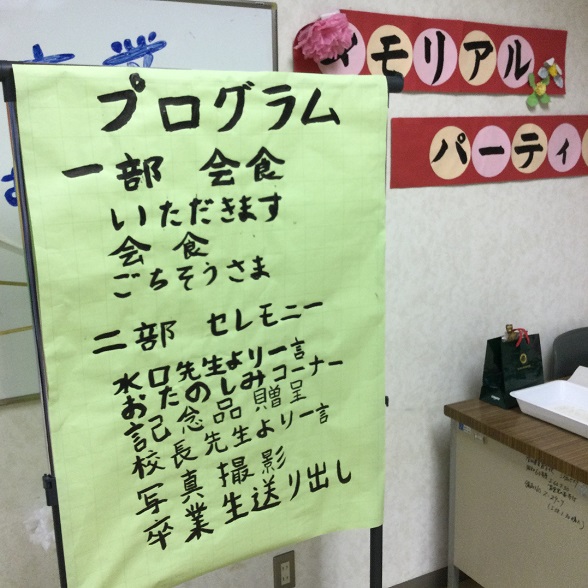 プログラム
一部 会食
いただきます
会食
ごちそうさま
二部 セレモニー
水口先生より一言
おたのしみコーナー
記念品贈呈
校長先生より一言
写真撮影
卒業生送り出し
メモリアル
パーティ
業